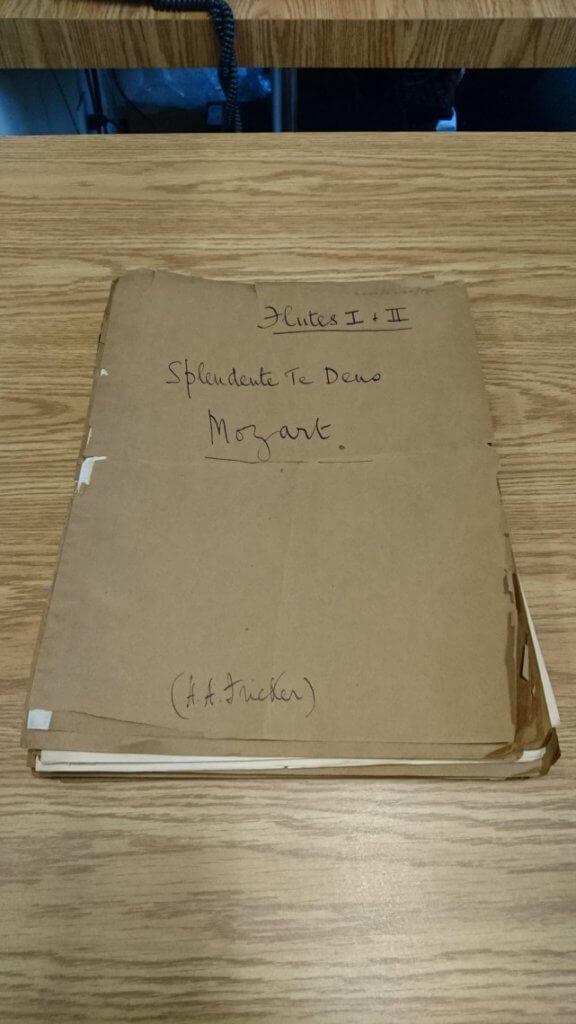 Flutes I + II
Splendente Te Deus
Mozart.
(H. A. Fricker)